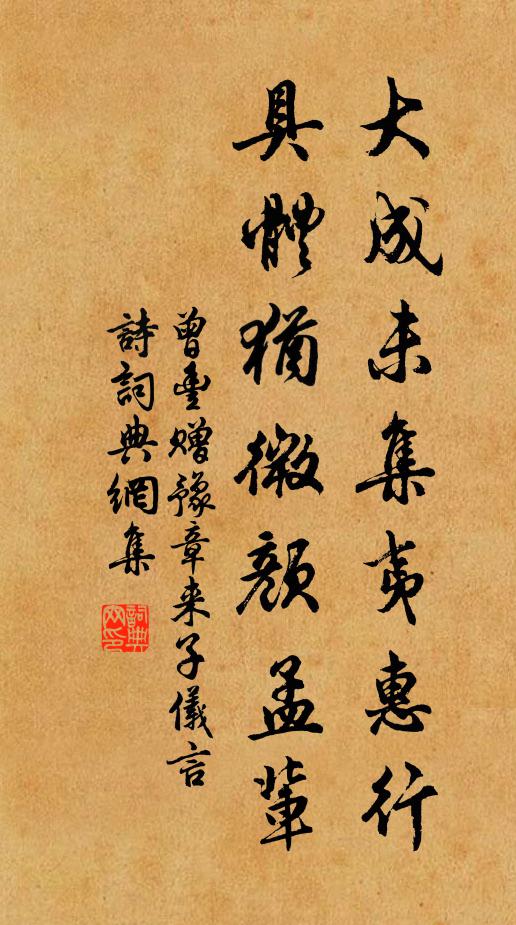 大成未集夷惠行
具體猶微顏孟輩
曾豐贈豫章来子儀言
詩詞典網集
詞典網印